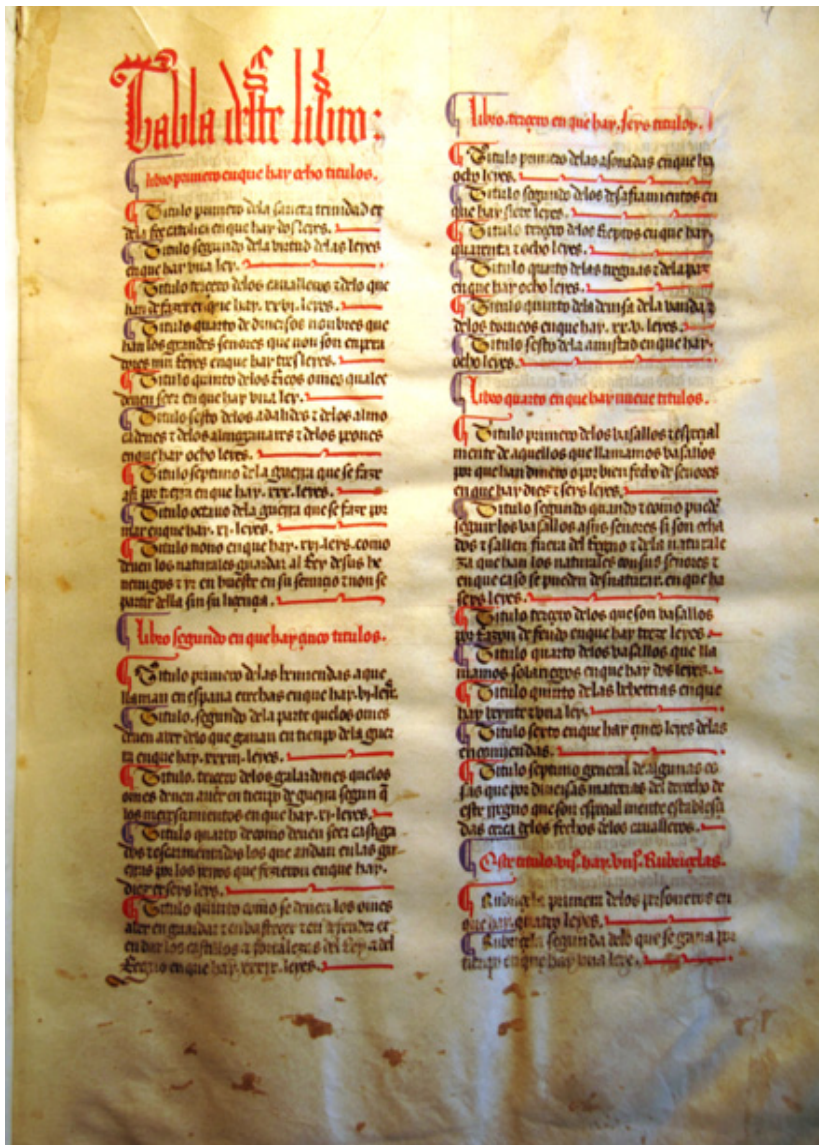 Tabla deste libro:
libro primero en que hay ocho titulos.
Titulo primero dela sancta trinidad et
dela fee catolica en que hay dos leyes.
Titulo segundo dela virtud delas leyes
en que hay vna ley.
Titulo terçero delos cavalleros τ delo que
han de fazer en que hay. xxvi. leyes.
Titulo quarto de diuersos nonbres que
han los grandes señores que non son enpera
dores nin Reyes en que hay tres leyes.
Titulo quinto delos Ricos omes quales
deuen seer en que hay vna ley.
Titulo sesto delos adalides τ delos almo
cadenes τ delos almogauares τ delos peones
en que hay ocho leyes.
Titulo septimo dela guerra que se faze
asi por tierra en que hay. xxx. leyes.
Titulo octauo dela guerra que se faze por
mar en que hay. xi. leyes.
Titulo nono en que hay. xvi. leys. como
deuen los naturales guardar al Rey desus he
nemigos τ yr en hueste en su seruiçio τ non se
partir della sin su liçençia.
libro segundo en que hay çinco titulos.
Titulo primero delas hemiendas a que
llaman en españa erechas en que hay. vi. leyes.
Titulo. segundo dela parte quelos omes
deuen aber delo que ganan en tienpo dela guer
ra en que hay. xxxiii. leyes.
Titulo. terçero delos galardones quelos
omes deuen auer en tienpo de guerra segun q̃
los meresçamientos en que hay. xi. leyes.
Titulo quarto de como deuen seer castiga
dos τ escarmentados los que andan en las gue
rras por los yerros que fizieren en que hay.
diez τ seys leys.
Titulo quinto como se deuen los omes
aber en guardar τ en bastecer τ en defender et
en dar los castillos τ fortalezas del Rey τ del
Regno en que hay. xxxix. leyes.
libro. terçero en que hay. seys titulos.
Titulo primero delas asonadas en que ha
ocho leyes.
Titulo segundo delos desafiamientos en
que hay siete leyes.
Titulo terçero delos Rieptos en que hay
quarenta τ ocho leyes.
Titulo quarto delas treguas τ dela paz
en que hay ocho leyes.
Titulo quinto dela deuisa dela vanda τ
delos torneos en que hay. xx. v. leyes.
Titulo sesto dela amistad en que hay.
ocho leyes.
Libro quarto en que hay nueue titulos.
Titulo primero delos vasallos τ espeçial
mente de aquellos que llamamos vasallos
por que han dinero o por bien fecho de señores
en que hay dies τ seys leyes.
Titulo segundo quando τ como pueden
seguir los vasallos asus señores si son echa
dos τ sallen fuera del Regno τ dela naturale
za que han los naturales con sus señores τ
en que caso se pueden desnaturar. en que ha
seys leyes.
Titulo terçero delos que son vasallos
por Razon de feudo en que hay treze leyes
Titulo quarto delos vasallos que lla
mamos solariegos en que hay dos leyes.
Titulo quinto delas behetrias en que
hay beynte τ vna ley.
Titulo sexto en que hay çinco leyes delas
encomiendas.
Titulo septimo general de algunas co
sas que por diuersas materias del derecho de
este regno que son espeçial mente establesçi
das çerca delos fechos delos caualleros.
Este titulo. vii. hay. viii. Rubriçelas.
Rubriçela primera delos prisoneros en
que hay. quatro leyes.
Rubriçela segunda delo que se gana por
tienpo en que hay vna leye.